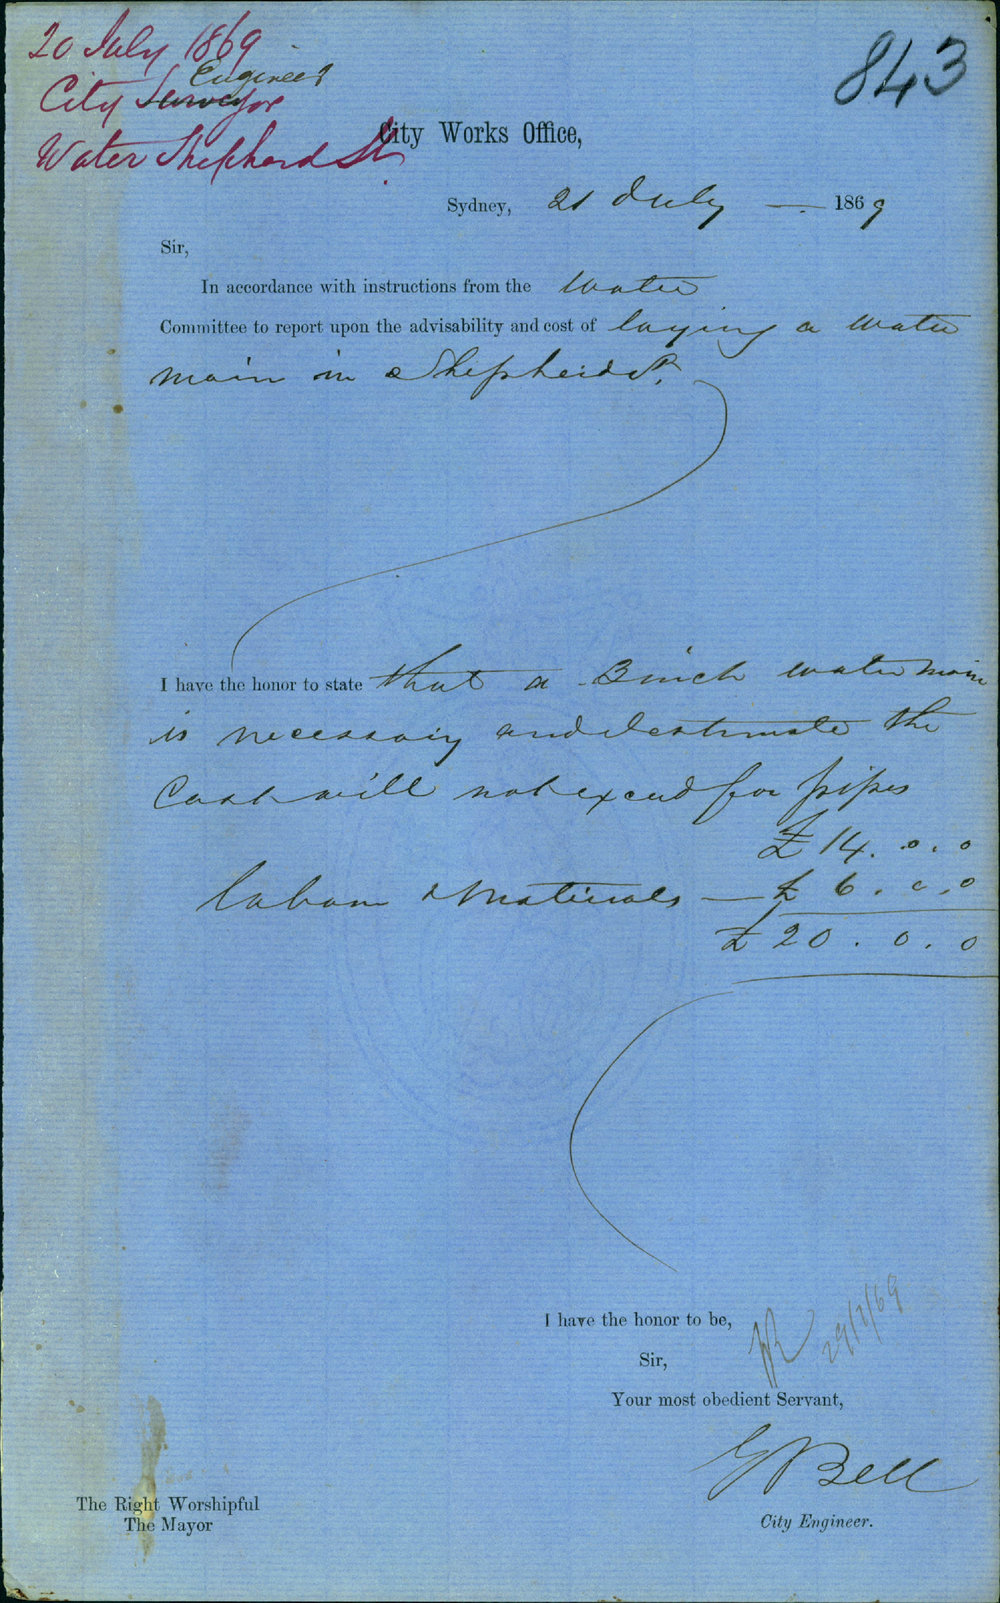 20 July 1869
843
Engineer
City Surveyor
Water Shepherd St.
City Works Office,
Sydney, 21 July — 1869
Sir,
In accordance with instructions from the Water
Committee to report upon the advisability and cost of laying a water
main in Shepherd St.
I have the honor to state that a 3 inch water main
is necessary and I estimate the
Cost will not exceed for pipes
£ 14. 0. 0
labour & Materials — £ 6. 0. 0
£ 20. 0. 0
I have the honor to be,
29/7/69
Sir,
Your most obedient Servant,
G Bell
The Right Worshipful
The Mayor
City Engineer.